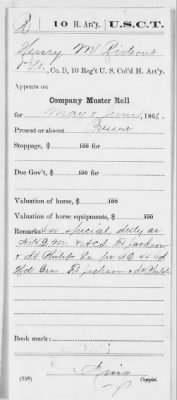 R | 10 H. Art'y. | U.S.C.T.
Henry M Rideout
, Co. D, 10 Reg't U. S. Col'd H. Art'y.
Appears on
Company Muster Roll
for May & June, 186
Present or absent Present
Stoppage, $ 100 for
Due Gov't, $ 100 for
Valuation of horse, $ 100
Valuation of horse equipments, $ 100
Remarks: On special duty as
Ft Jackson
& St Philip La. S.O.
Hd Qrs Ft Jackson & St Philip
Book mark:
(358)
Copyist.